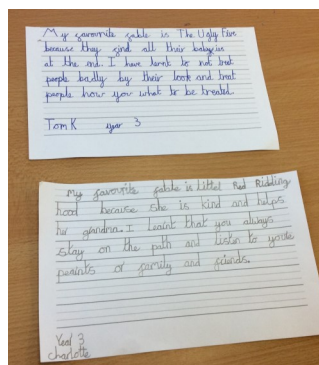 My favourite fable is The Ugly Five
because they find all their babys
at the end. I have lernt to not treat
people badly by their look and treat
people how you what to be treated
Tom K year 3
My favourite fable is Littel Red Ridding
hood because she is kind and helps
her grandma. I learnt that you always
stay on the path and listen to your
perints or family and friends.
Year 3
Charlotte